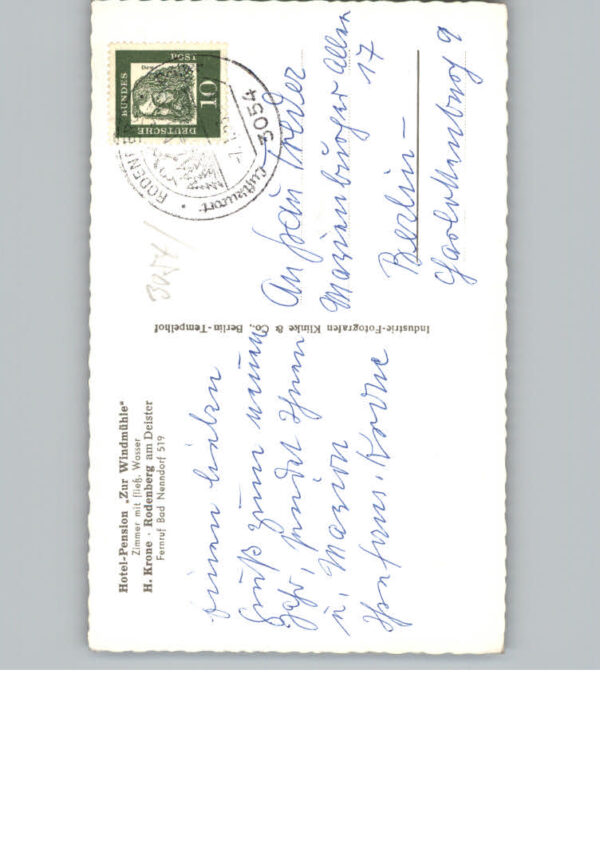 Hotel-Pension „Zur Windmühle"
Zimmer mit fließ. Wasser
H. Krone · Rodenberg am Deister
Fernruf Bad Nenndorf 519
einen lieben
Gruß zum neuen
Jahr, sendet Ihnen
u. Marion
Industrie-Fotografen Klinke & Co., Berlin-Tempelhof
3057/
DEUTSCHE
BUNDES
POST
10
3054
RODENBERG
Luftkurort
An Frau
Marienburger Allee
17
Berlin-
Charlottenburg 9